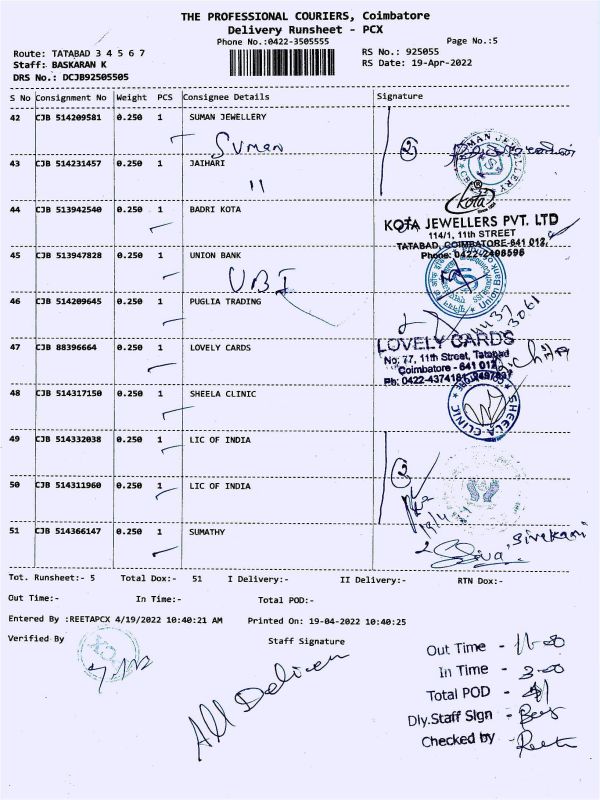 THE PROFESSIONAL COURIERS, Coimbatore
Delivery Runsheet - PCX
Phone No.:0422-3505555
Page No.:5
Route: TATABAD 3 4 5 6 7
RS No.: 925055
Staff: BASKARAN K
RS Date: 19-Apr-2022
DRS No.: DCJB92505505
S No Consignment No Weight PCS Consignee Details Signature
42 CJB 514209581 0.250 1 SUMAN JEWELLERY
Suman
2
SUMAN JEWELLERY
43 CJB 514231457 0.250 1 JAIHARI
11
44 CJB 513942540 0.250 1 BADRI KOTA
Kota
KOTA JEWELLERS PVT. LTD
114/1, 11th STREET
TATABAD, COIMBATORE-641 012,
Phone: 0422-2498596
45 CJB 513947828 0.250 1 UNION BANK
UBI
Union Bank
46 CJB 514209645 0.250 1 PUGLIA TRADING
47 CJB 88396664 0.250 1 LOVELY CARDS
LOVELY CARDS
No: 77, 11th Street, Tatabad
Coimbatore - 641 012
48 CJB 514317150 0.250 1 SHEELA CLINIC
SHEELA CLINIC
49 CJB 514332038 0.250 1 LIC OF INDIA
2
50 CJB 514311960 0.250 1 LIC OF INDIA
51 CJB 514366147 0.250 1 SUMATHY
Siva, Sivakami
Tot. Runsheet:- 5 Total Dox:- 51 I Delivery:- II Delivery:- RTN Dox:-
Out Time:- In Time:- Total POD:-
Entered By :REETAPCX 4/19/2022 10:40:21 AM Printed On: 19-04-2022 10:40:25
Verified By Staff Signature
All Deliver
Out Time - 11-00
In Time - 3-00
Total POD -
Dly.Staff Sign -
Checked by - Reeta